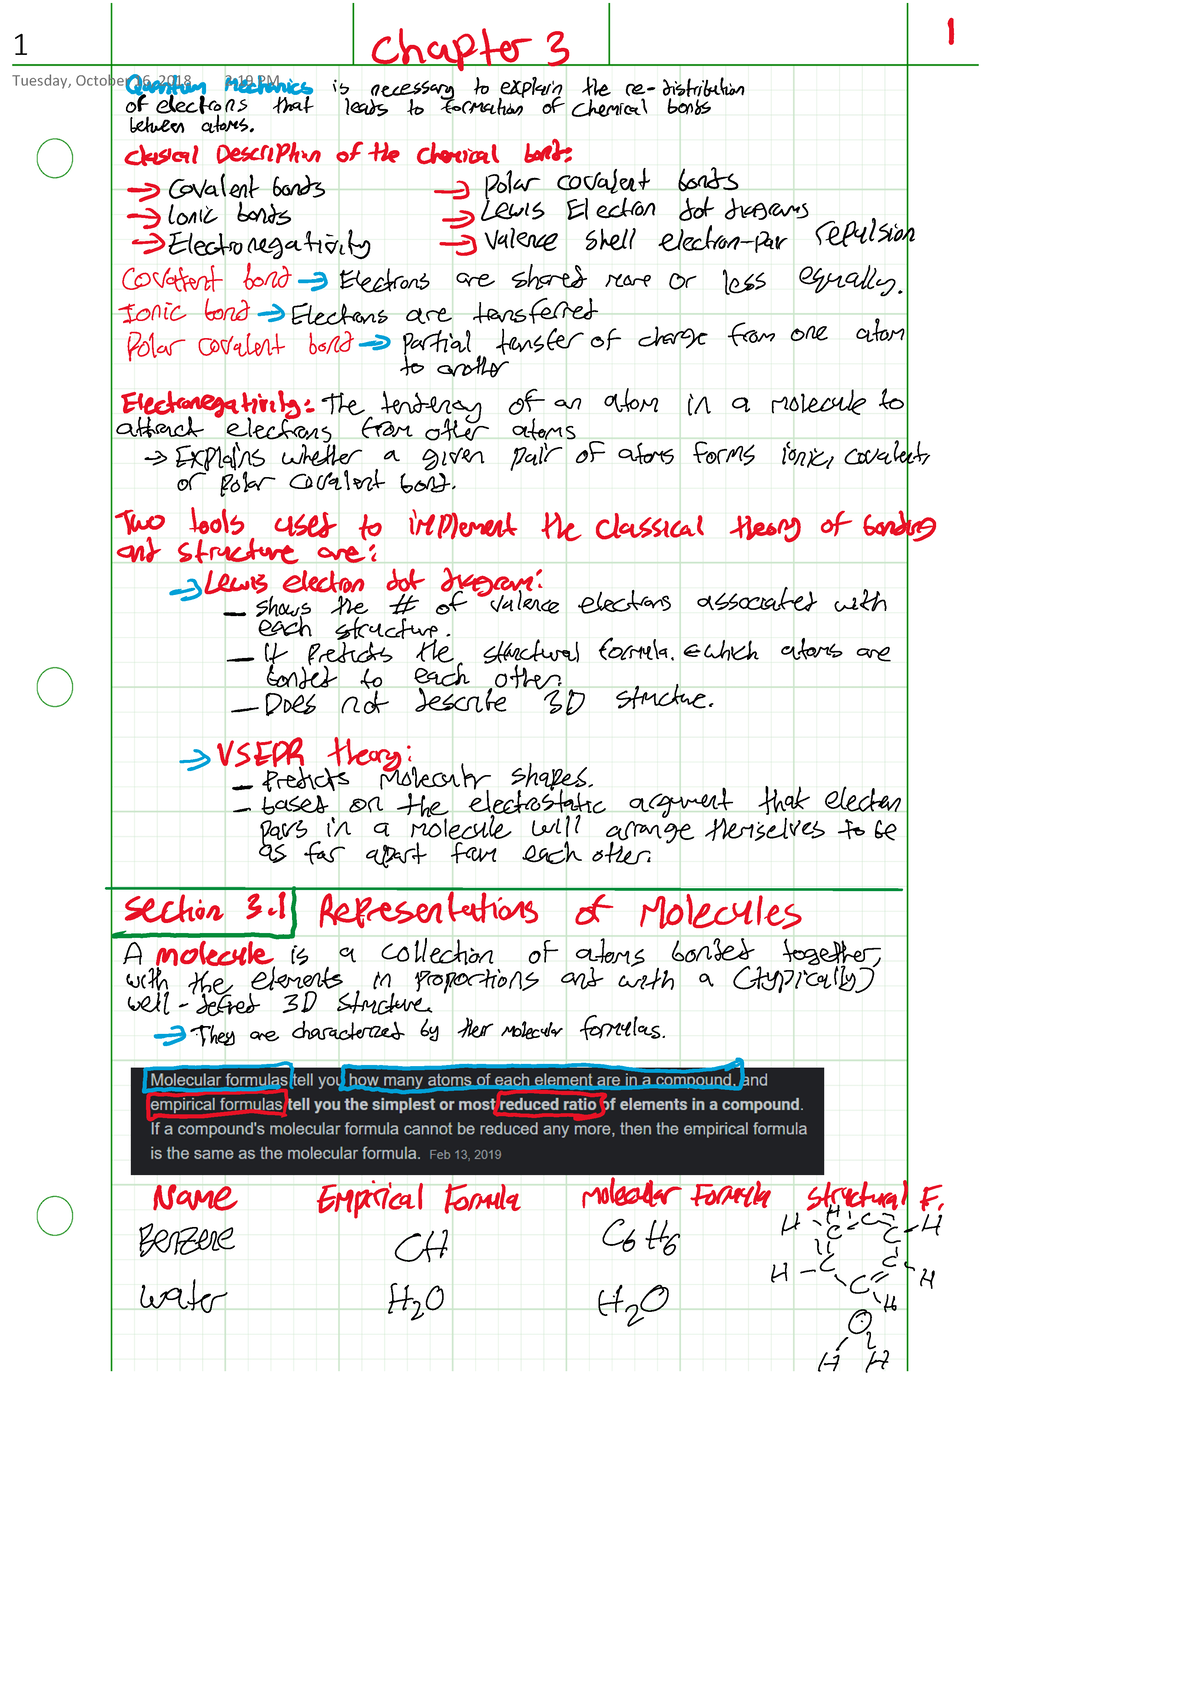 1
Chapter 3
1
Tuesday, October 16, 2018 3:19 PM
Quantum Mechanics is necessary to explain the re-distribution
of electrons that leads to formation of chemical bonds
between atoms.
Classical Description of the Chemical bond:
→ Covalent bonds → Polar covalent bonds
→ Ionic bonds → Lewis Electron dot diagrams
→ Electronegativity → Valence shell electron-pair repulsion
Covalent bond → Electrons are shared more or less equally.
Ionic bond → Electrons are transferred
Polar covalent bond → Partial transfer of charge from one atom
to another
Electronegativity: The tendency of an atom in a molecule to
attract electrons from other atoms
→ Explains whether a given pair of atoms forms ionic, covalent,
or polar covalent bond.
Two tools used to implement the classical theory of bonding
and structure are:
→ Lewis electron dot diagram:
– shows the # of valence electrons associated with
each structure.
– It predicts the structural formula. ← which atoms are
bonded to each other.
– Does not describe 3D structure.
→ VSEPR theory:
– Predicts Molecular shapes.
– based on the electrostatic argument that electron
pairs in a molecule will arrange themselves to be
as far apart from each other.
Section 3.1 Representations of Molecules
A molecule is a collection of atoms bonded together,
with the elements in proportions and with a (typically)
well-defined 3D structure.
→ They are characterized by their molecular formulas.
Molecular formulas tell you how many atoms of each element are in a compound, and
empirical formulas tell you the simplest or most reduced ratio of elements in a compound.
If a compound's molecular formula cannot be reduced any more, then the empirical formula
is the same as the molecular formula. Feb 13, 2019
Name Empirical Formula Molecular Formula Structural F.
Benzene CH C6H6
H H C C H
C C
H C C H
C H
Water H2O H2O
O
H H